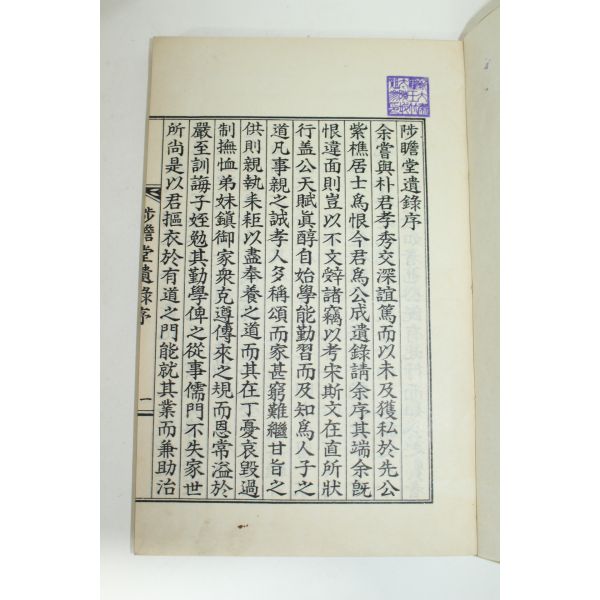 陟瞻堂遺錄序
余嘗與朴君孝秀交深誼篤而以未及獲私於先公
紫樵居士爲恨今君爲公成遺錄請余序其端余旣
恨違面則豈以不文辤諸竊以考宋斯文在直所狀
行盖公天賦眞醇自始學能勤習而及知爲人子之
道凡事親之誠孝人多稱頌而家甚窮難繼甘旨之
供則親執耒耟以盡奉養之道而其在丁憂哀毀過
制撫恤弟妹鎭御家衆克遵傳來之規而恩常溢於
嚴至訓誨子姪勉其勤學俾之從事儒門不失家世
所尚是以君摳衣於有道之門能就其業而兼助治
陟瞻堂遺錄序
一